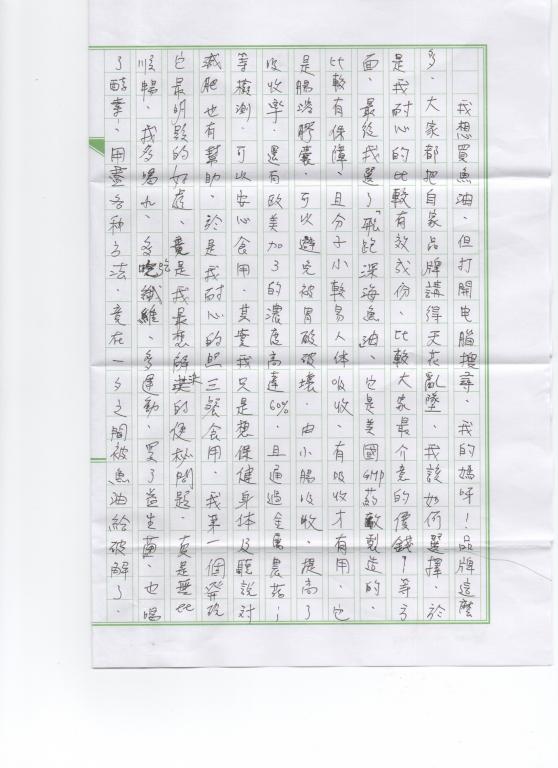 我想買魚油、但打開电腦搜尋、我的媽呀！品牌這麼
多、大家都把自家品牌講得天花亂墜、我該如何選擇、於
是我耐心的比較有效成份、比較大家最介意的價錢！等方
面、最後我選了「飛跑深海魚油、它是美國GMP药廠製造的、
比較有保障、且分子小較易人体吸收、有吸收才有用、它
是腸溶膠囊、可以避免被胃酸破壞、由小腸吸收、提高了
吸收率、還有歐美加了的濃度高達60%、且通過金属農葯；
等檢測、可以安心食用、其實我只是想保健身体及聽說对
減肥也有幫助、於是我耐心的照三餐食用、我第一個發現
它最明顯的好處、竟是我最想解決的便秘問題、真是無比
順暢、我多喝水、多吃纖維、多運動、買了益生菌、也喝
了酵素、用盡各种方法、竟在一夕之間被魚油給破解了、